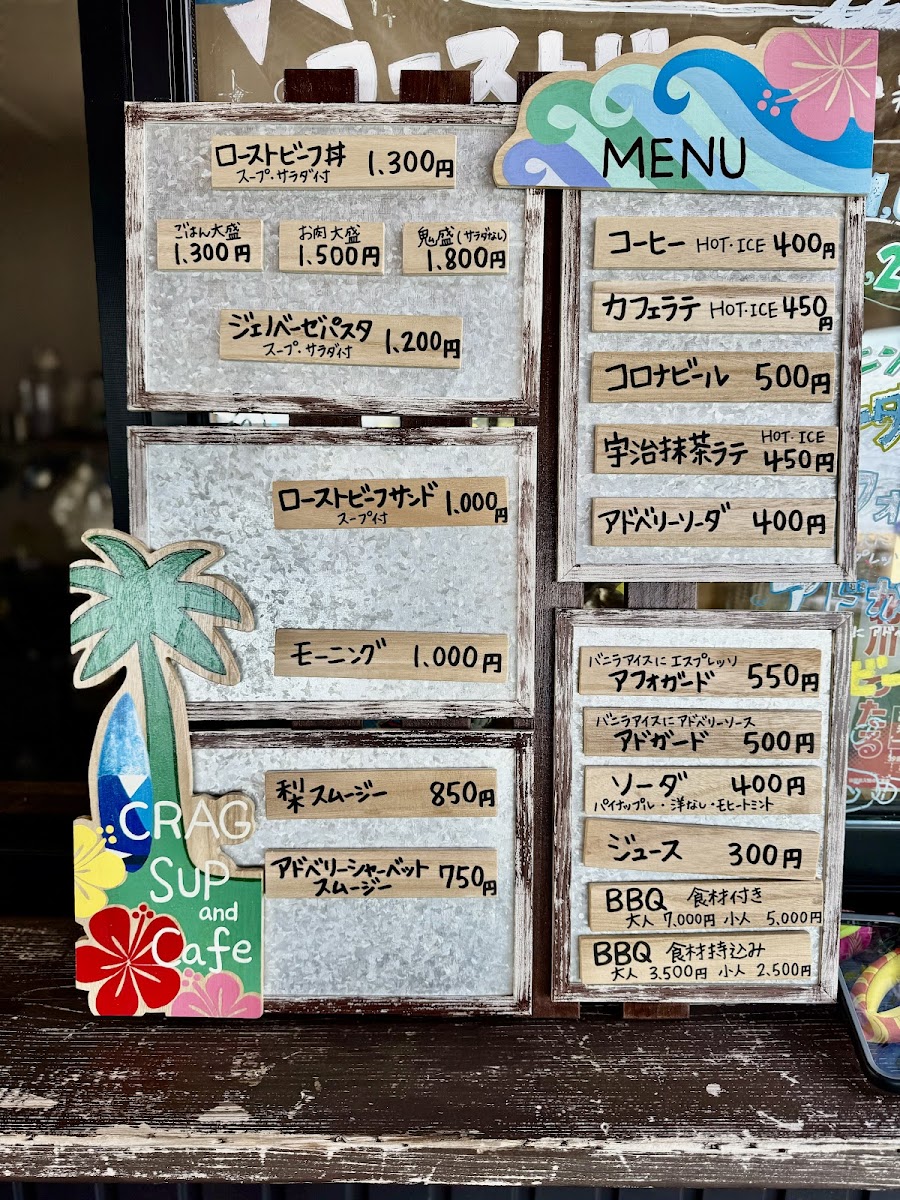 MENU
ローストビーフ丼 1.300円
スープ・サラダ付
ごはん大盛
1.300円
お肉大盛
1.500円
鬼盛(サラダなし)
1.800円
ジェノベーゼパスタ 1.200円
スープ・サラダ付
ローストビーフサンド 1.000円
スープ付
モーニング 1.000円
梨スムージー 850円
アドベリーシャーベット
スムージー 750円
コーヒー HOT・ICE 400円
カフェラテ HOT・ICE 450円
コロナビール 500円
宇治抹茶ラテ HOT・ICE 450円
アドベリーソーダ 400円
バニラアイスにエスプレッソ
アフォガード 550円
バニラアイスにアドベリーソース
アドガード 500円
ソーダ 400円
パイナップル・洋なし・モヒートミント
ジュース 300円
BBQ 食材付き
大人 7,000円 小人 5,000円
BBQ 食材持込み
大人 3,500円 小人 2,500円
CRAG
SUP
and
Cafe